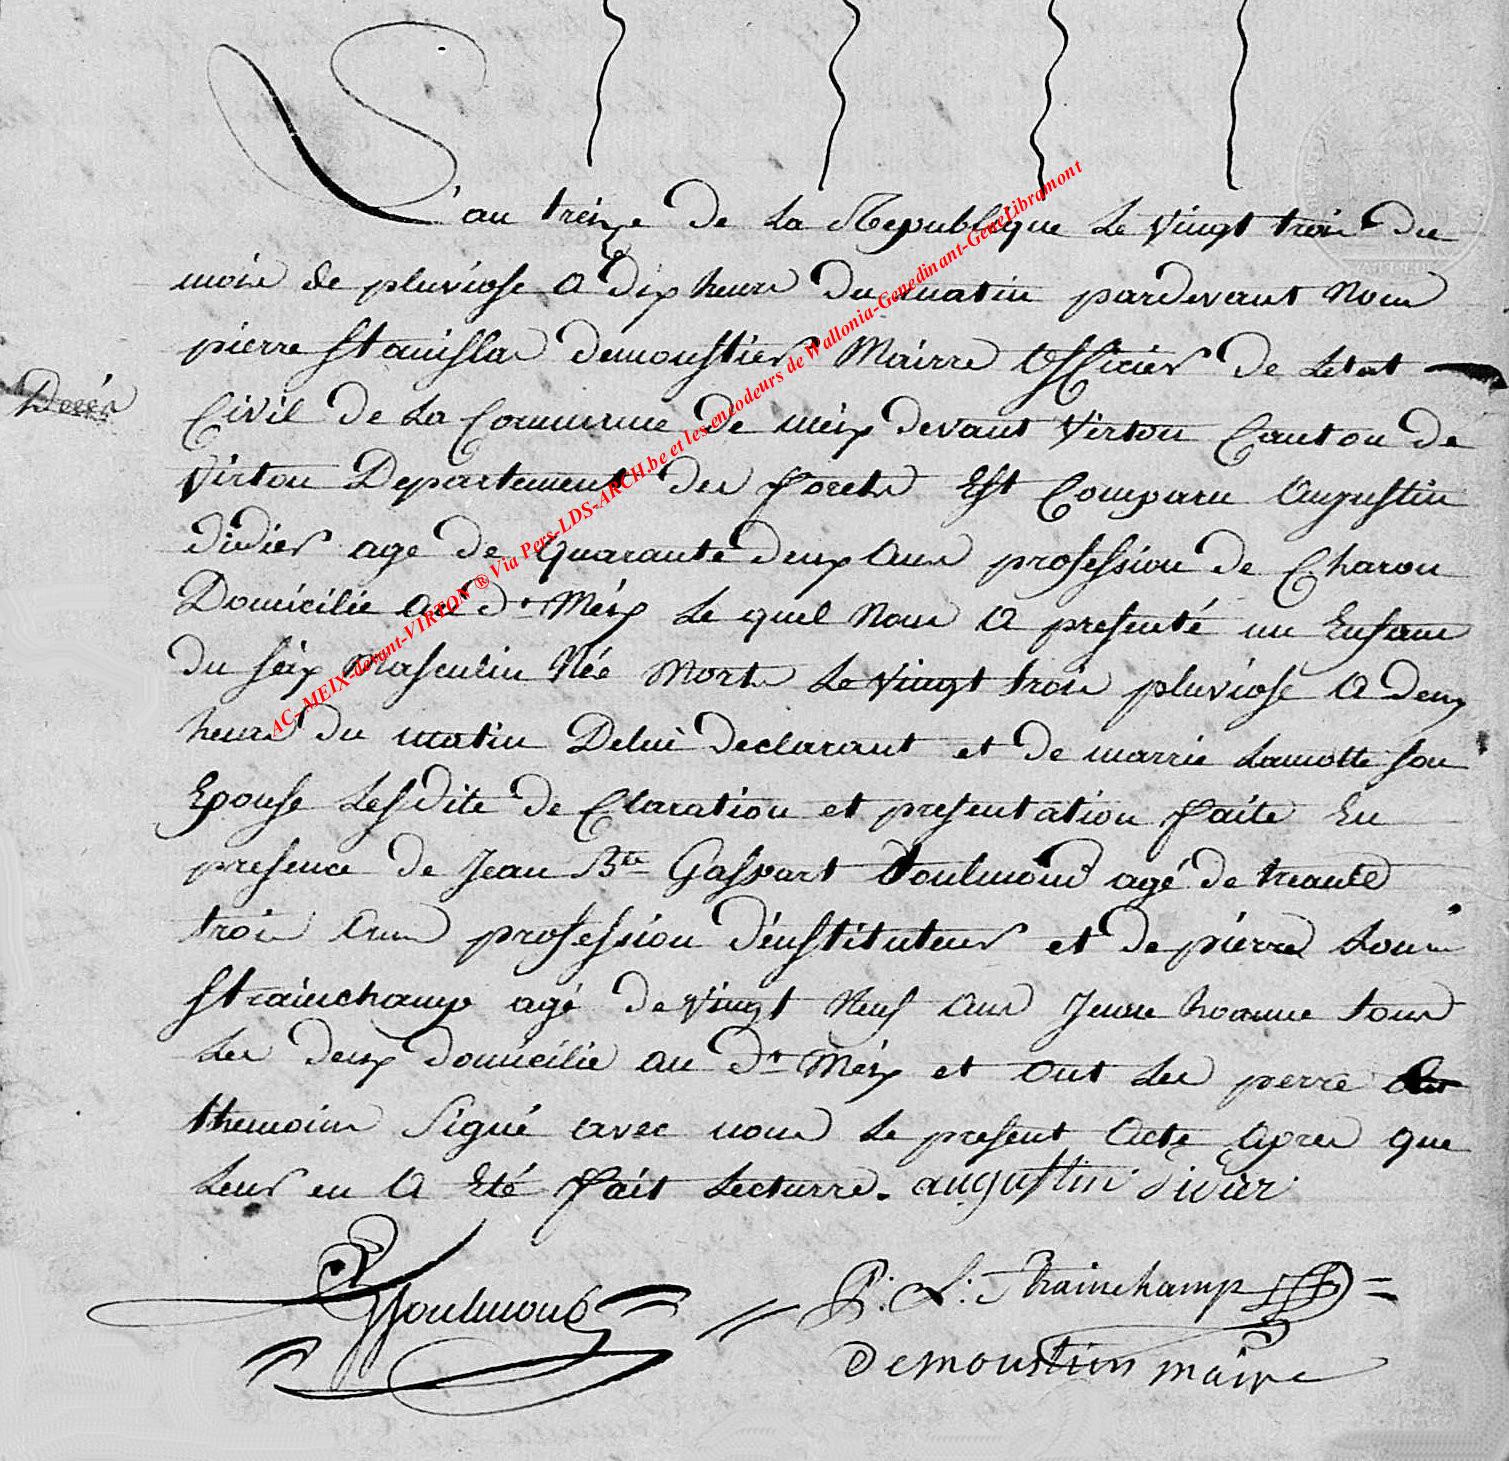 L'an treize de La Republique Le vingt trois du
mois de pluviose a dix heure du matin pardevant nous
pierre stanislas demoustier Mairre officier de Letat
Décès
Civil de La Commune de meix devant virton Canton de
virton Departement des forets Est Comparu augustin
didier age de quarante deux ans profession de Charon
Domicilié au dt Méix Le quel nous a presenté un Enfant
du séix Masculin Née Morts Le vingt trois pluviose a deux
heure du matin Delui declarant et de marrie Lamotte son
Epouse Lesdite de Claration et presentation faite En
presence de Jean Bte Gaspart Goulmoud agé de treante
trois ans profession d'énstituteur et de pierre Louis
strainchamp agé de vingt neuf ans Jeune homme tous
Les deux domicilié au dt Méix et ont Les perre et
themoins signé avec nous Le present acte apres que
Leur en a Eté fait Lecturre. augustin didier
Goulmoud P: L: Strainchamp
Demoustier maire
AC-MEIX-devant-VIRTON ® Via Pers-LDS-ARCH.be et les encodeurs de Wallonia-Genedinant-GeneLibramont